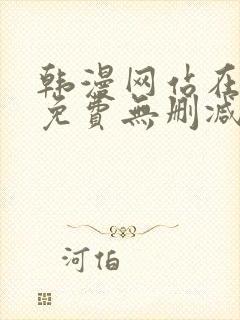 韩漫网站在
免費無删减
河伯